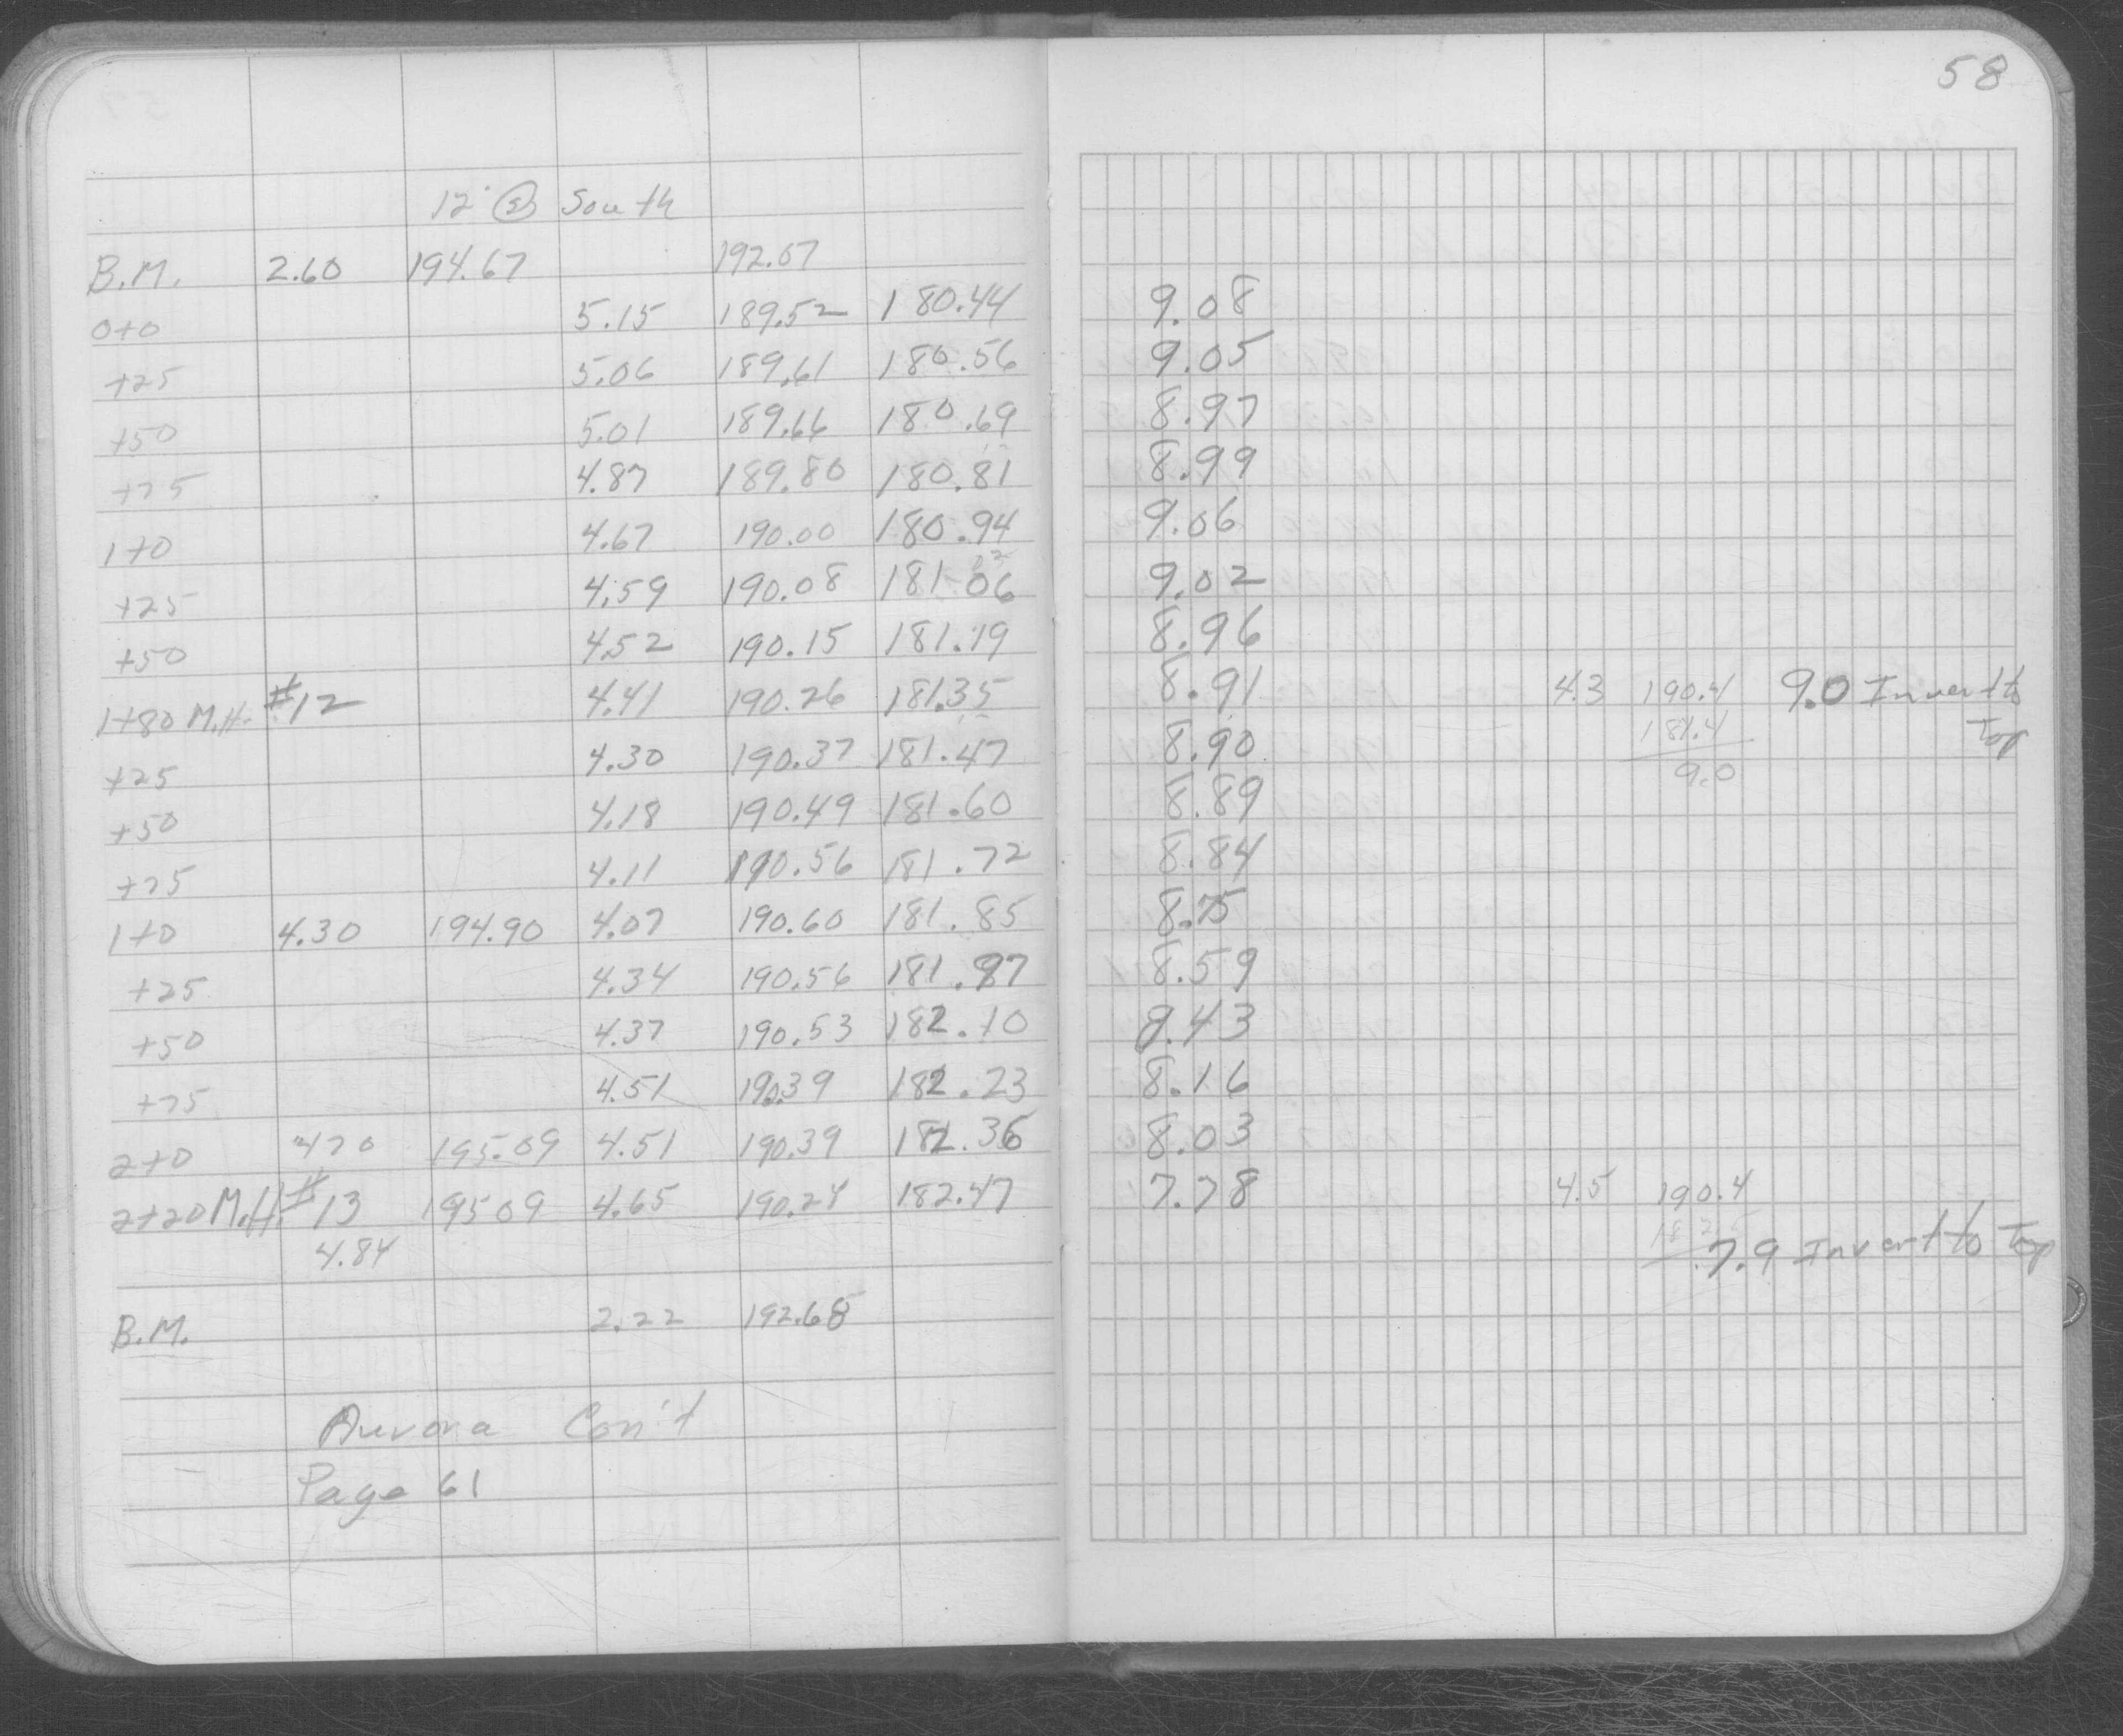 58
12" Ⓢ South
B.M. 2.60 194.67 192.07
0+0 5.15 189.52 180.44 9.08
+25 5.06 189.61 180.56 9.05
+50 5.01 189.66 180.69 8.97
+75 4.87 189.80 180.81 8.99
1+0 4.67 190.00 180.94 9.06
+25 4.59 190.08 181.06 9.02
+50 4.52 190.15 181.19 8.96
1+80 M.H. #12 4.41 190.26 181.35 8.91 4.3 190.4 9.0 Invert to
181.4 Top
+25 4.30 190.37 181.47 8.90
9.0
+50 4.18 190.49 181.60 8.89
+75 4.11 190.56 181.72 8.84
1+0 4.30 194.90 4.07 190.60 181.85 8.75
+25 4.34 190.56 181.97 8.59
+50 4.37 190.53 182.10 8.43
+75 4.51 190.39 182.23 8.16
2+0 470 195.09 4.51 190.39 182.36 8.03
2+20 M.H. #13 19509 4.65 190.24 182.47 7.78 4.5 190.4
4.84
7.9 Invert to Top
B.M. 2.22 192.68
Aurora Con't
Page 61